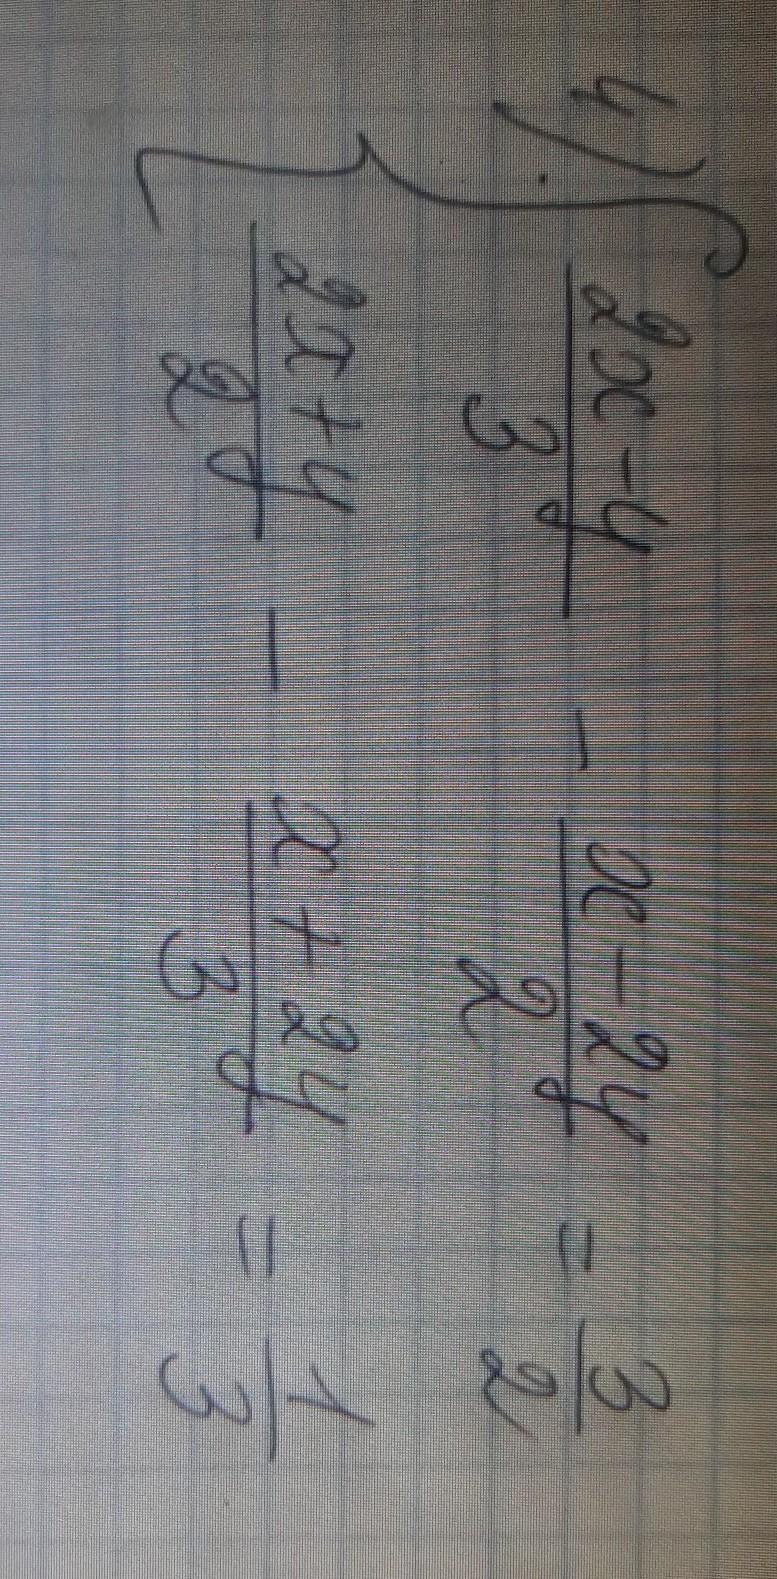 4) { (2x-y)/3 - (x-2y)/2 = 3/2
(2x+y)/2 - (x+2y)/3 = 1/3